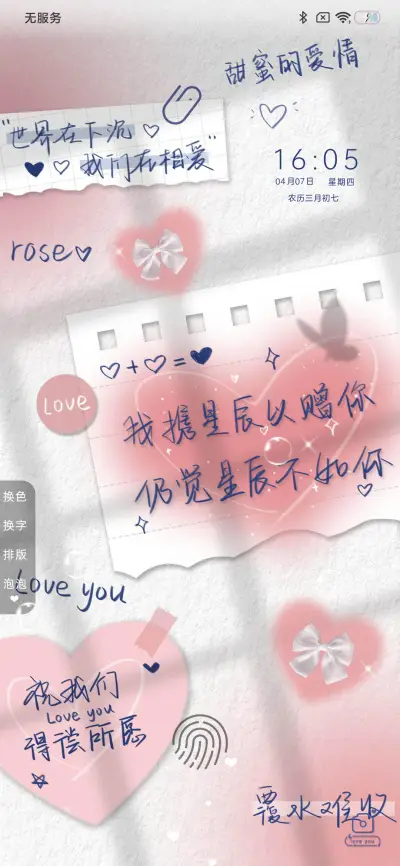 无服务
甜蜜的爱情
"世界在下沉
我们在相爱"
16:05
04月07日 星期四
农历三月初七
rose
Love
我携星辰以赠你
仍觉星辰不如你
换色
换字
排版
泡泡
Love you
祝我们
Love you
得偿所愿
覆水难收
love you